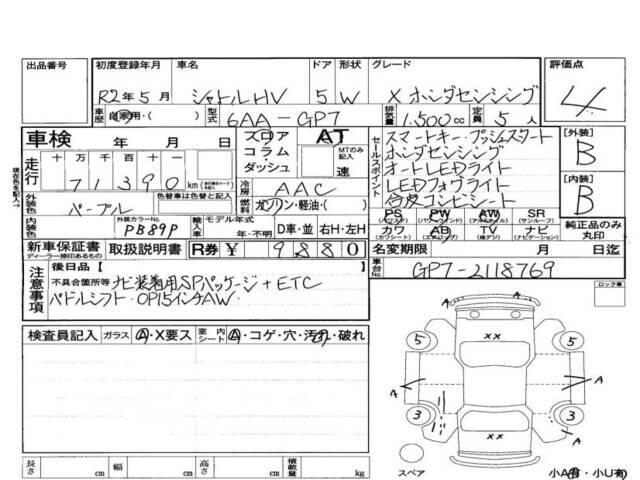 出品番号 初度登録年月 車名 ドア 形状 グレード 評価点
R2年5月 シャトルHV 5 W X ホンダセンシング 4
車歴 自家用・( ) 型式 6AA-GP7 排気量 1.500cc 定員 5人
車検 年 月 日 フロア AT セールスポイント スマートキー・プッシュスタート [外装]
コラム MTのみ記入 ホンダセンシング B
走行 十万千百十 ダッシュ 速 オートLEDライト
71390km 冷房 AAC LEDフォグライト [内装]
外装色 パープル 色替車は色替えを記入 燃料 ガソリン・軽油・( ) 合皮コンビシート B
PS PW AW SR
(パワステ) (パワーウィンド) (アルミホイル) (サンルーフ)
内装色 外装カラーNo. PB89P 輸入車 モデル年式 年・不明 D車・並 右H・左H カワ AB TV ナビ 純正品のみ丸印
(カワシート) (エアバッグ) (地デジ) (ナビゲーション)
新車保証書 取扱説明書 R券 ¥ 9880 名変期限 月 日迄
ディーラー捺印あるもの
注意事項 後日品[ ] 車台No. GP7-2118769
不具合箇所等 ナビ装着用SPパッケージ+ETC ロック車
パドルシフト・OP15インチAW・
検査員記入 ガラス A・X要ス 室内シート A・コゲ・穴・汚れ・破れ
xx
5 5
A A
3 3
A xx
長さ cm 幅 cm 高さ cm 積載量 kg スペア 小A有・小U有